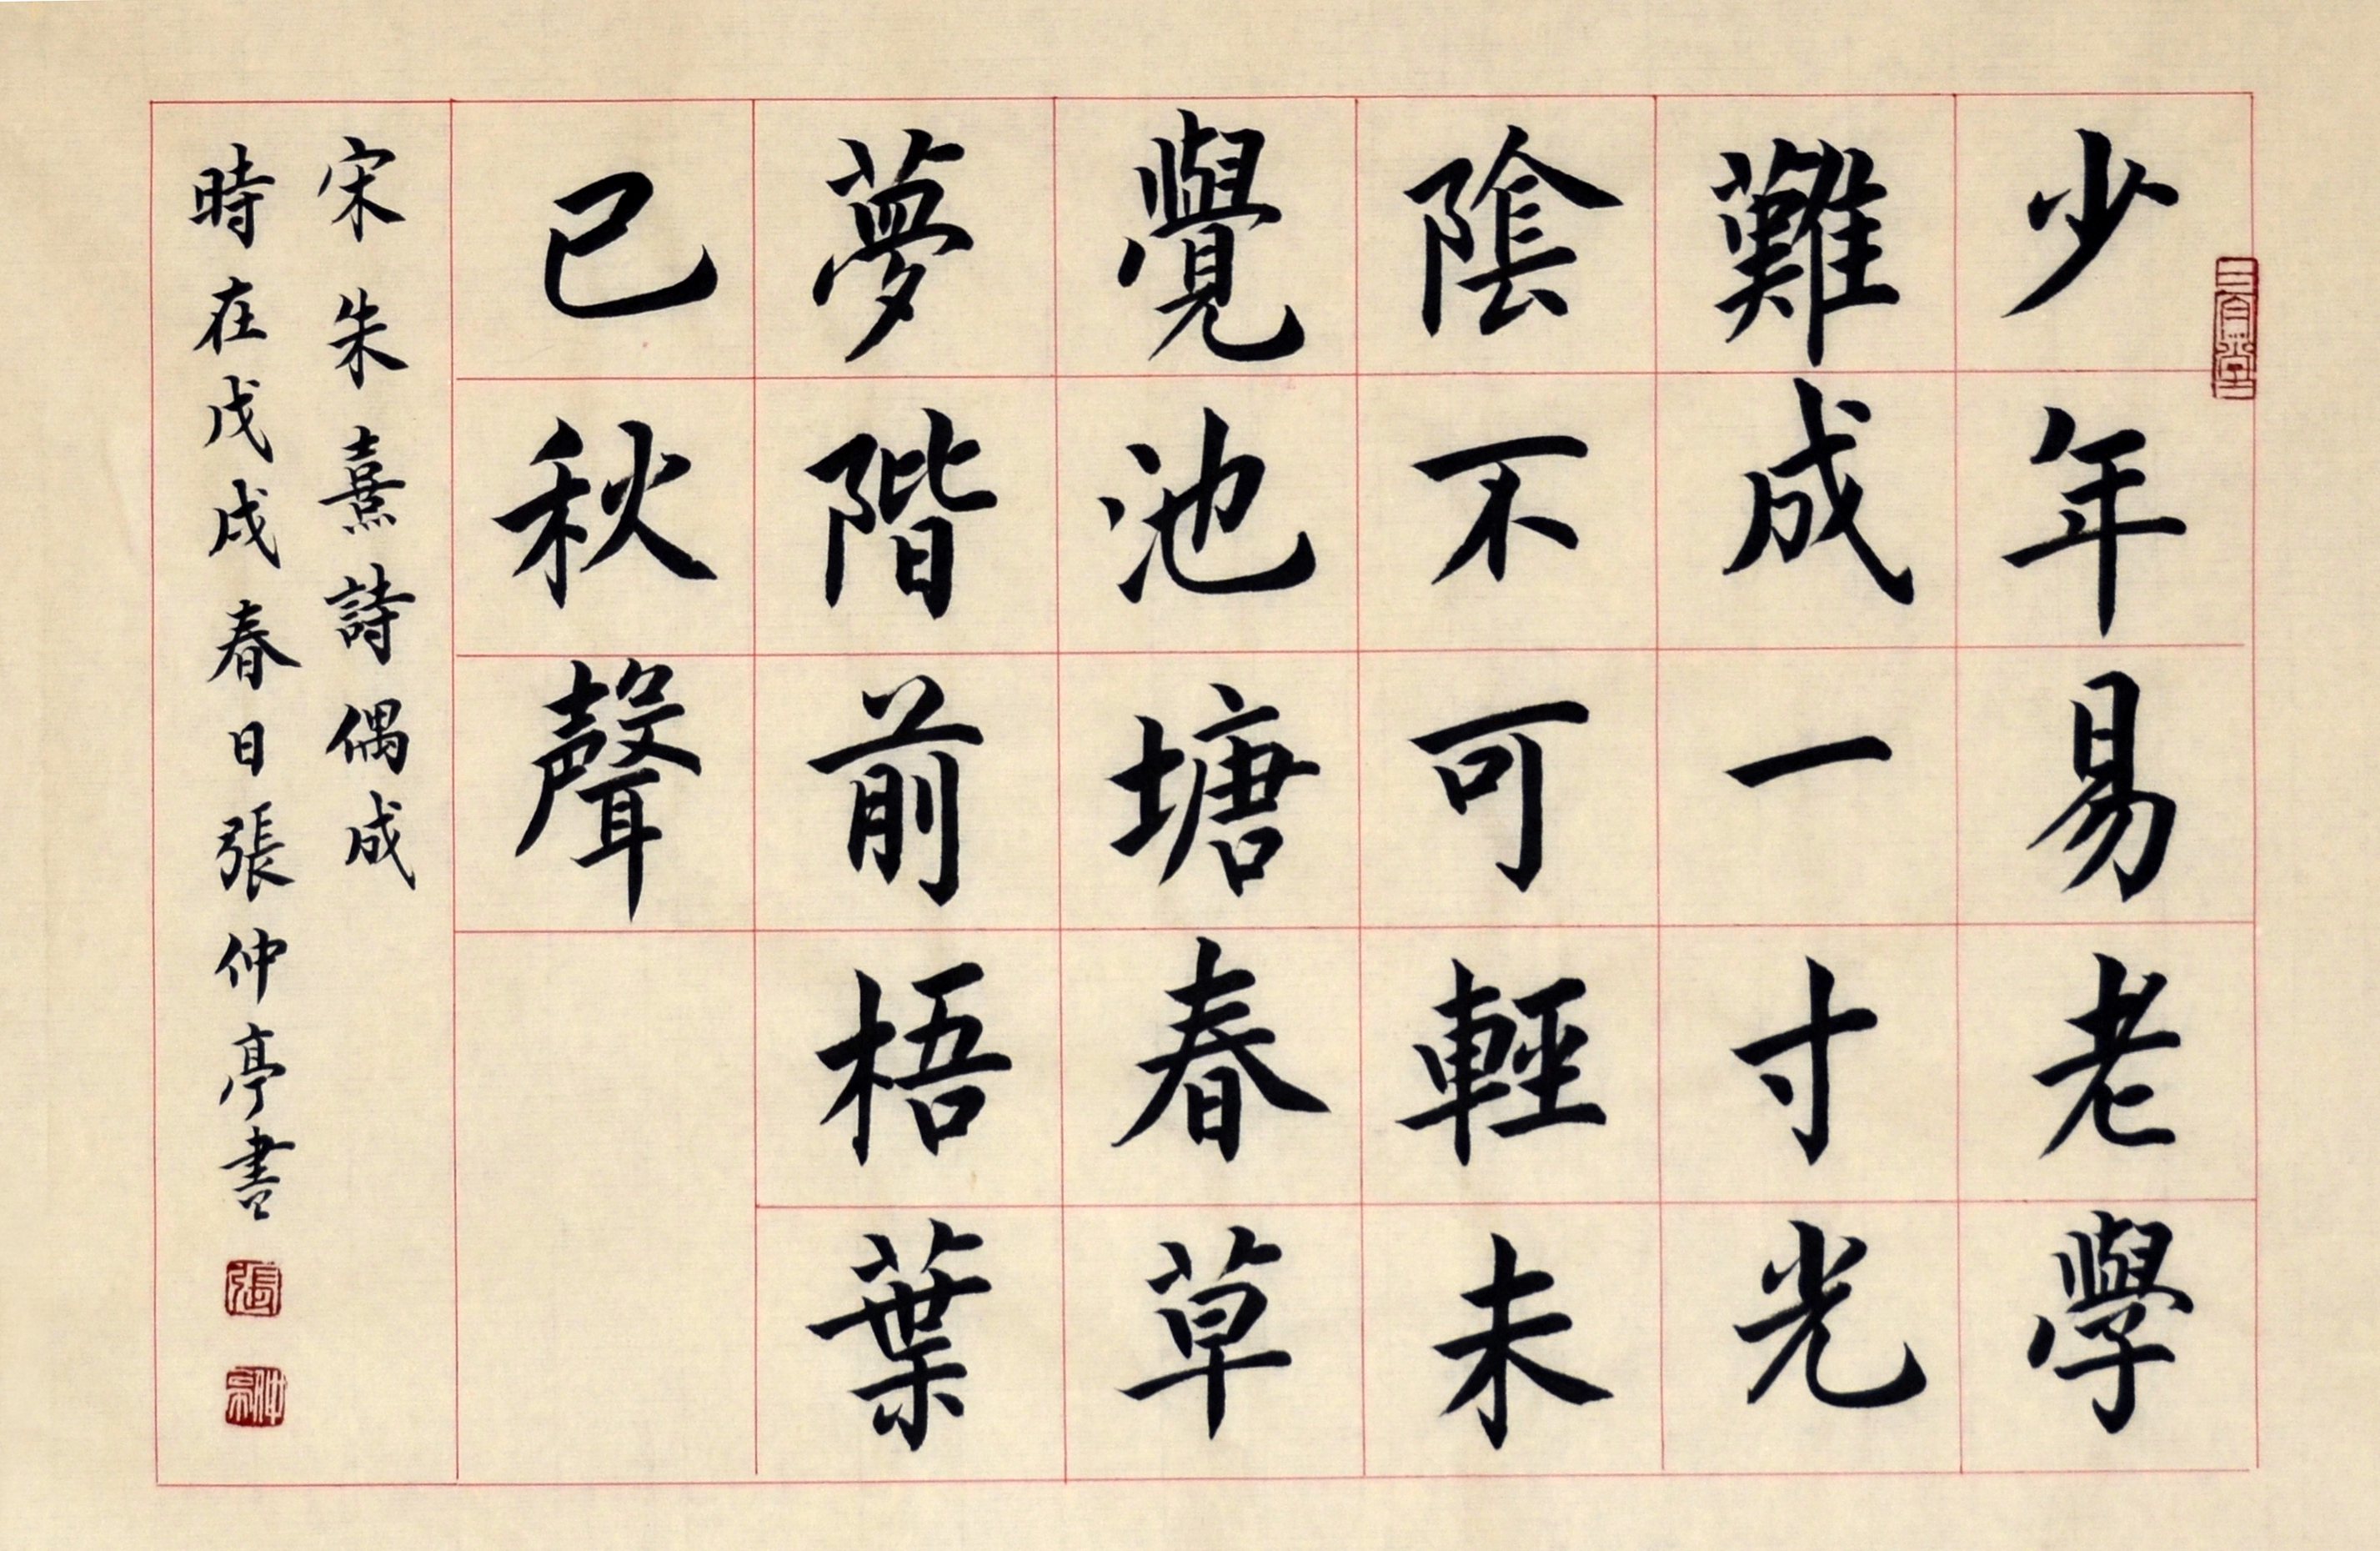 少年易老學
難成一寸光
陰不可輕未
覺池塘春草
夢階前梧葉
已秋聲
宋朱熹詩偶成
時在戊戌春日張仲亭書